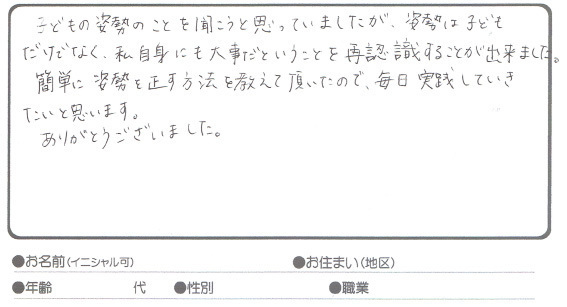 子どもの姿勢のことを聞こうと思っていましたが、姿勢は子ども
だけでなく、私自身にも大事だということを再認識することが出来ました。
簡単に姿勢を正す方法を教えて頂いたので、毎日実践していき
たいと思います。
ありがとうございました。
●お名前(イニシャル可) ●お住まい(地区)
●年齢 代 ●性別 ●職業